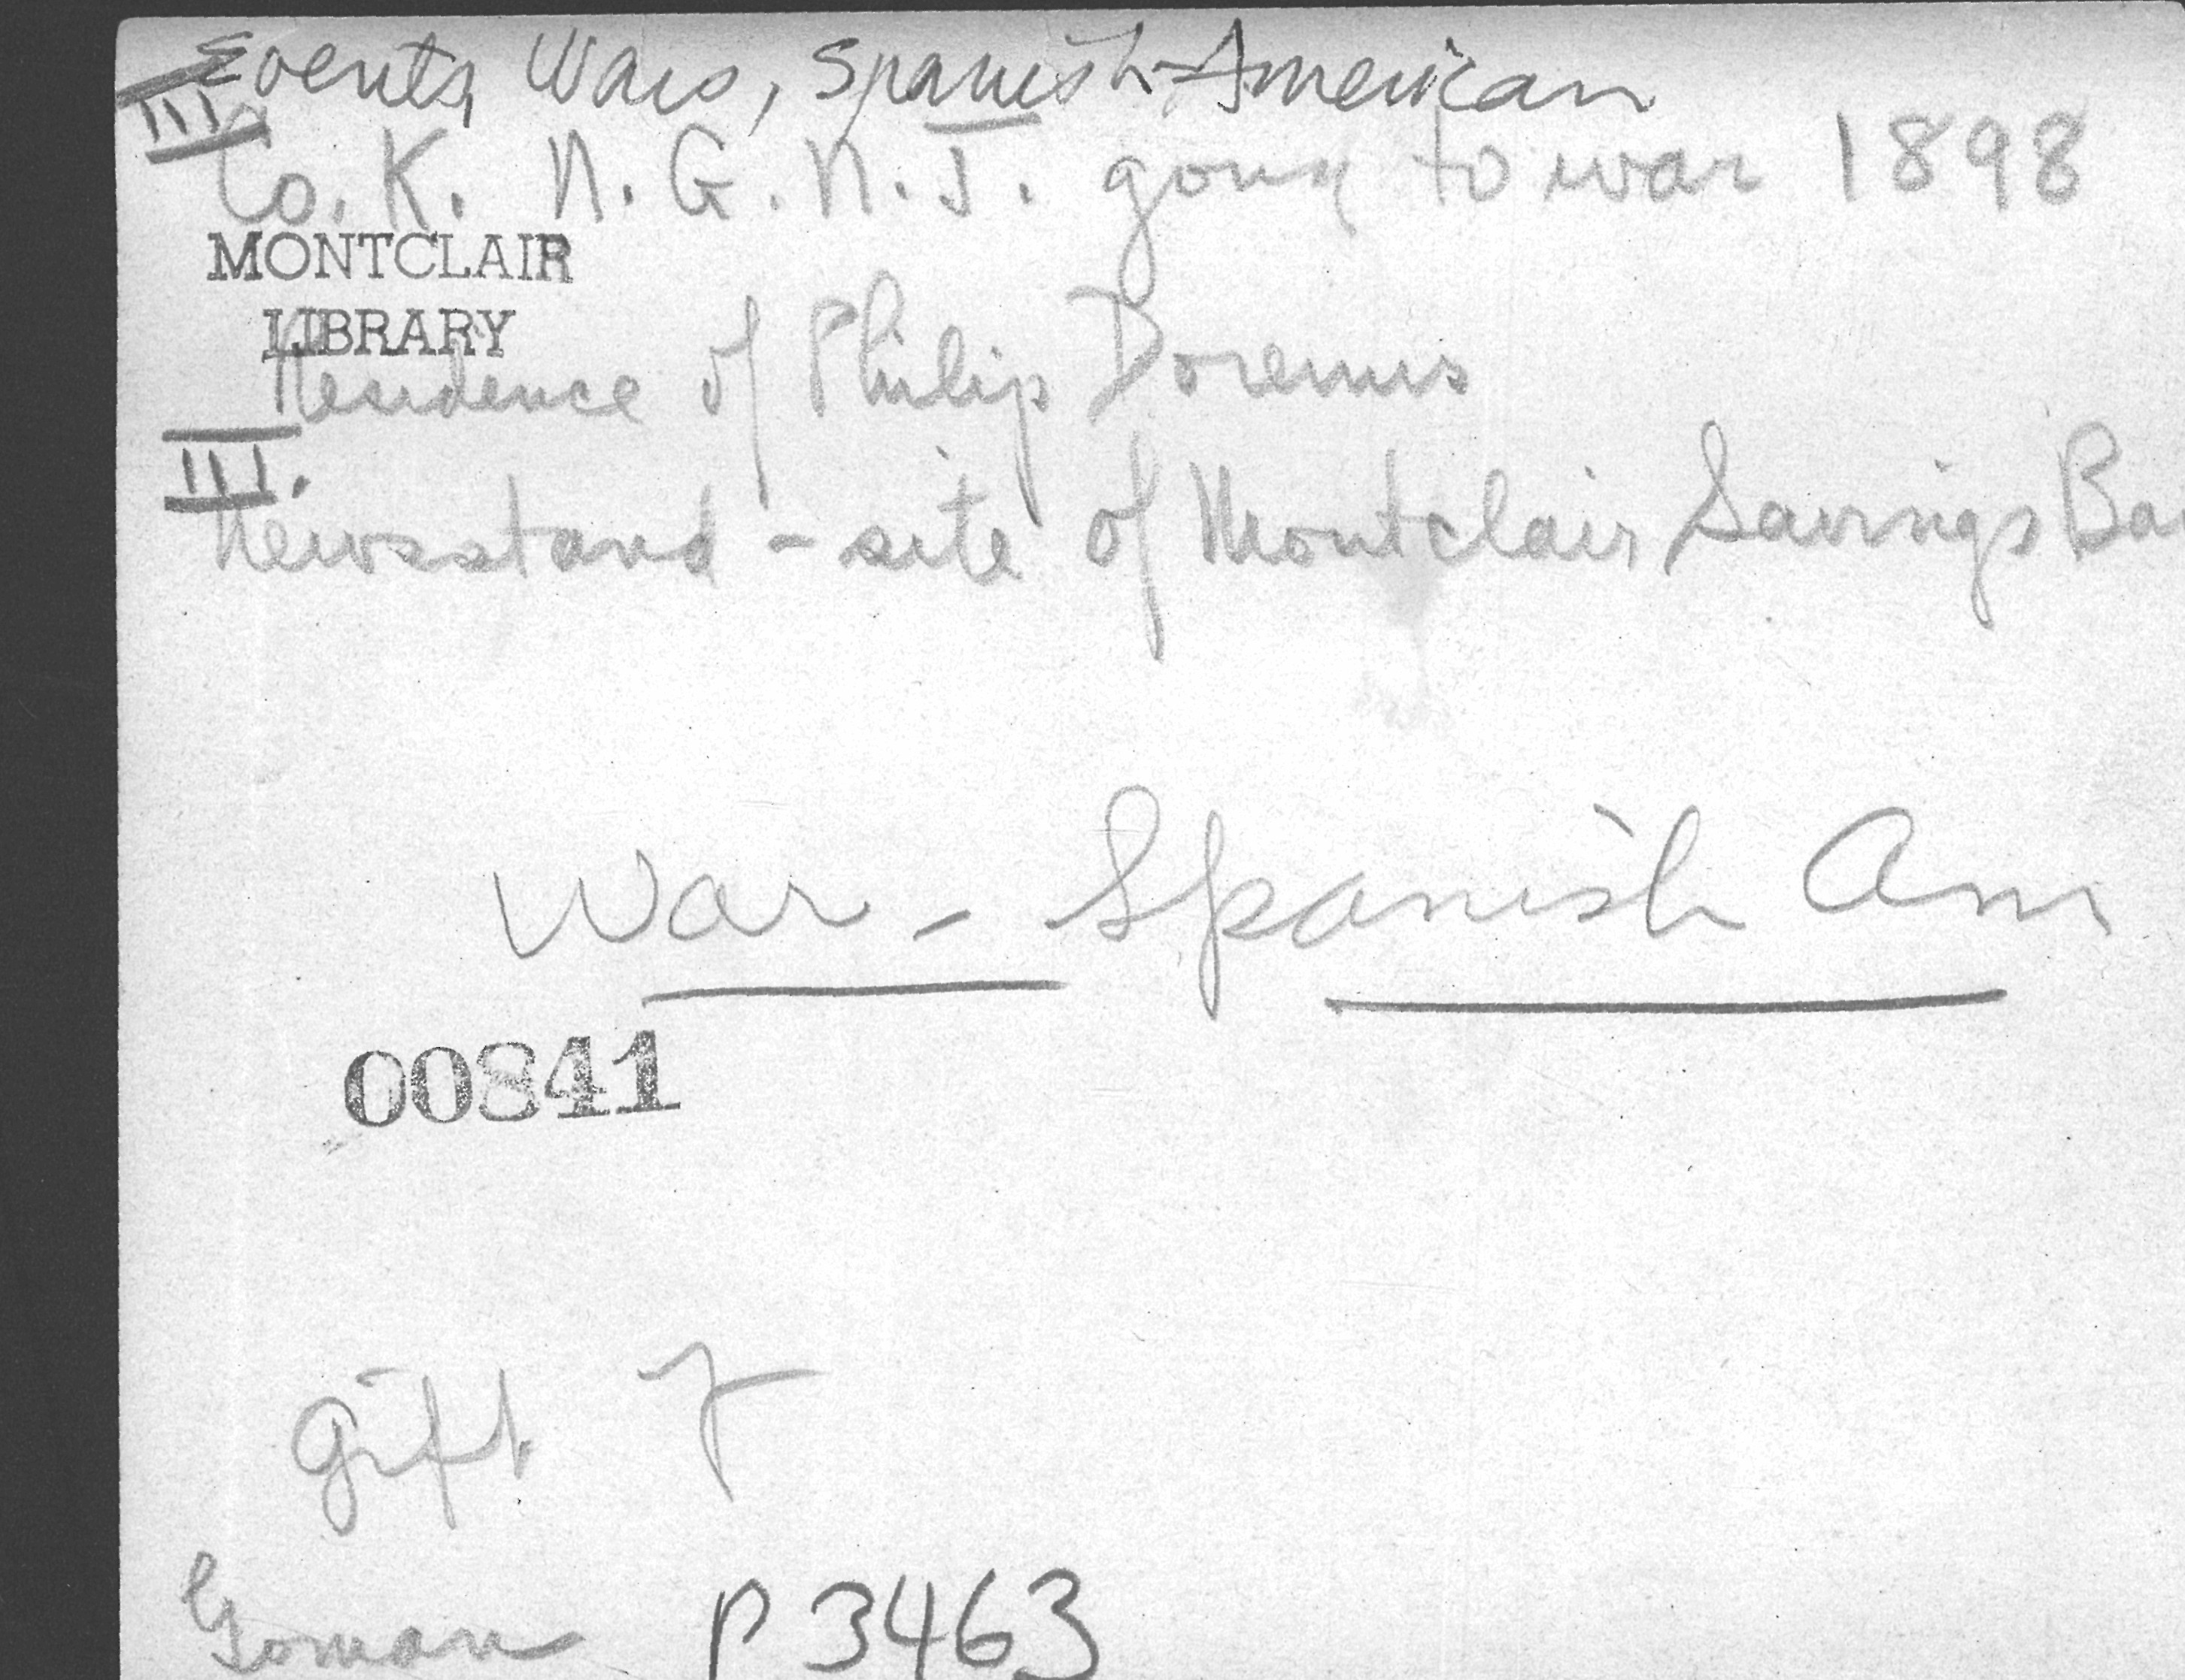 Events, Wars, Spanish-American
III
Co. K. N.G.N.J. going to war 1898
MONTCLAIR
LIBRARY
Residence of Philip Doremus
III.
Newsstand - site of Montclair Savings Ba
War - Spanish Am
00841
gift
P 3463